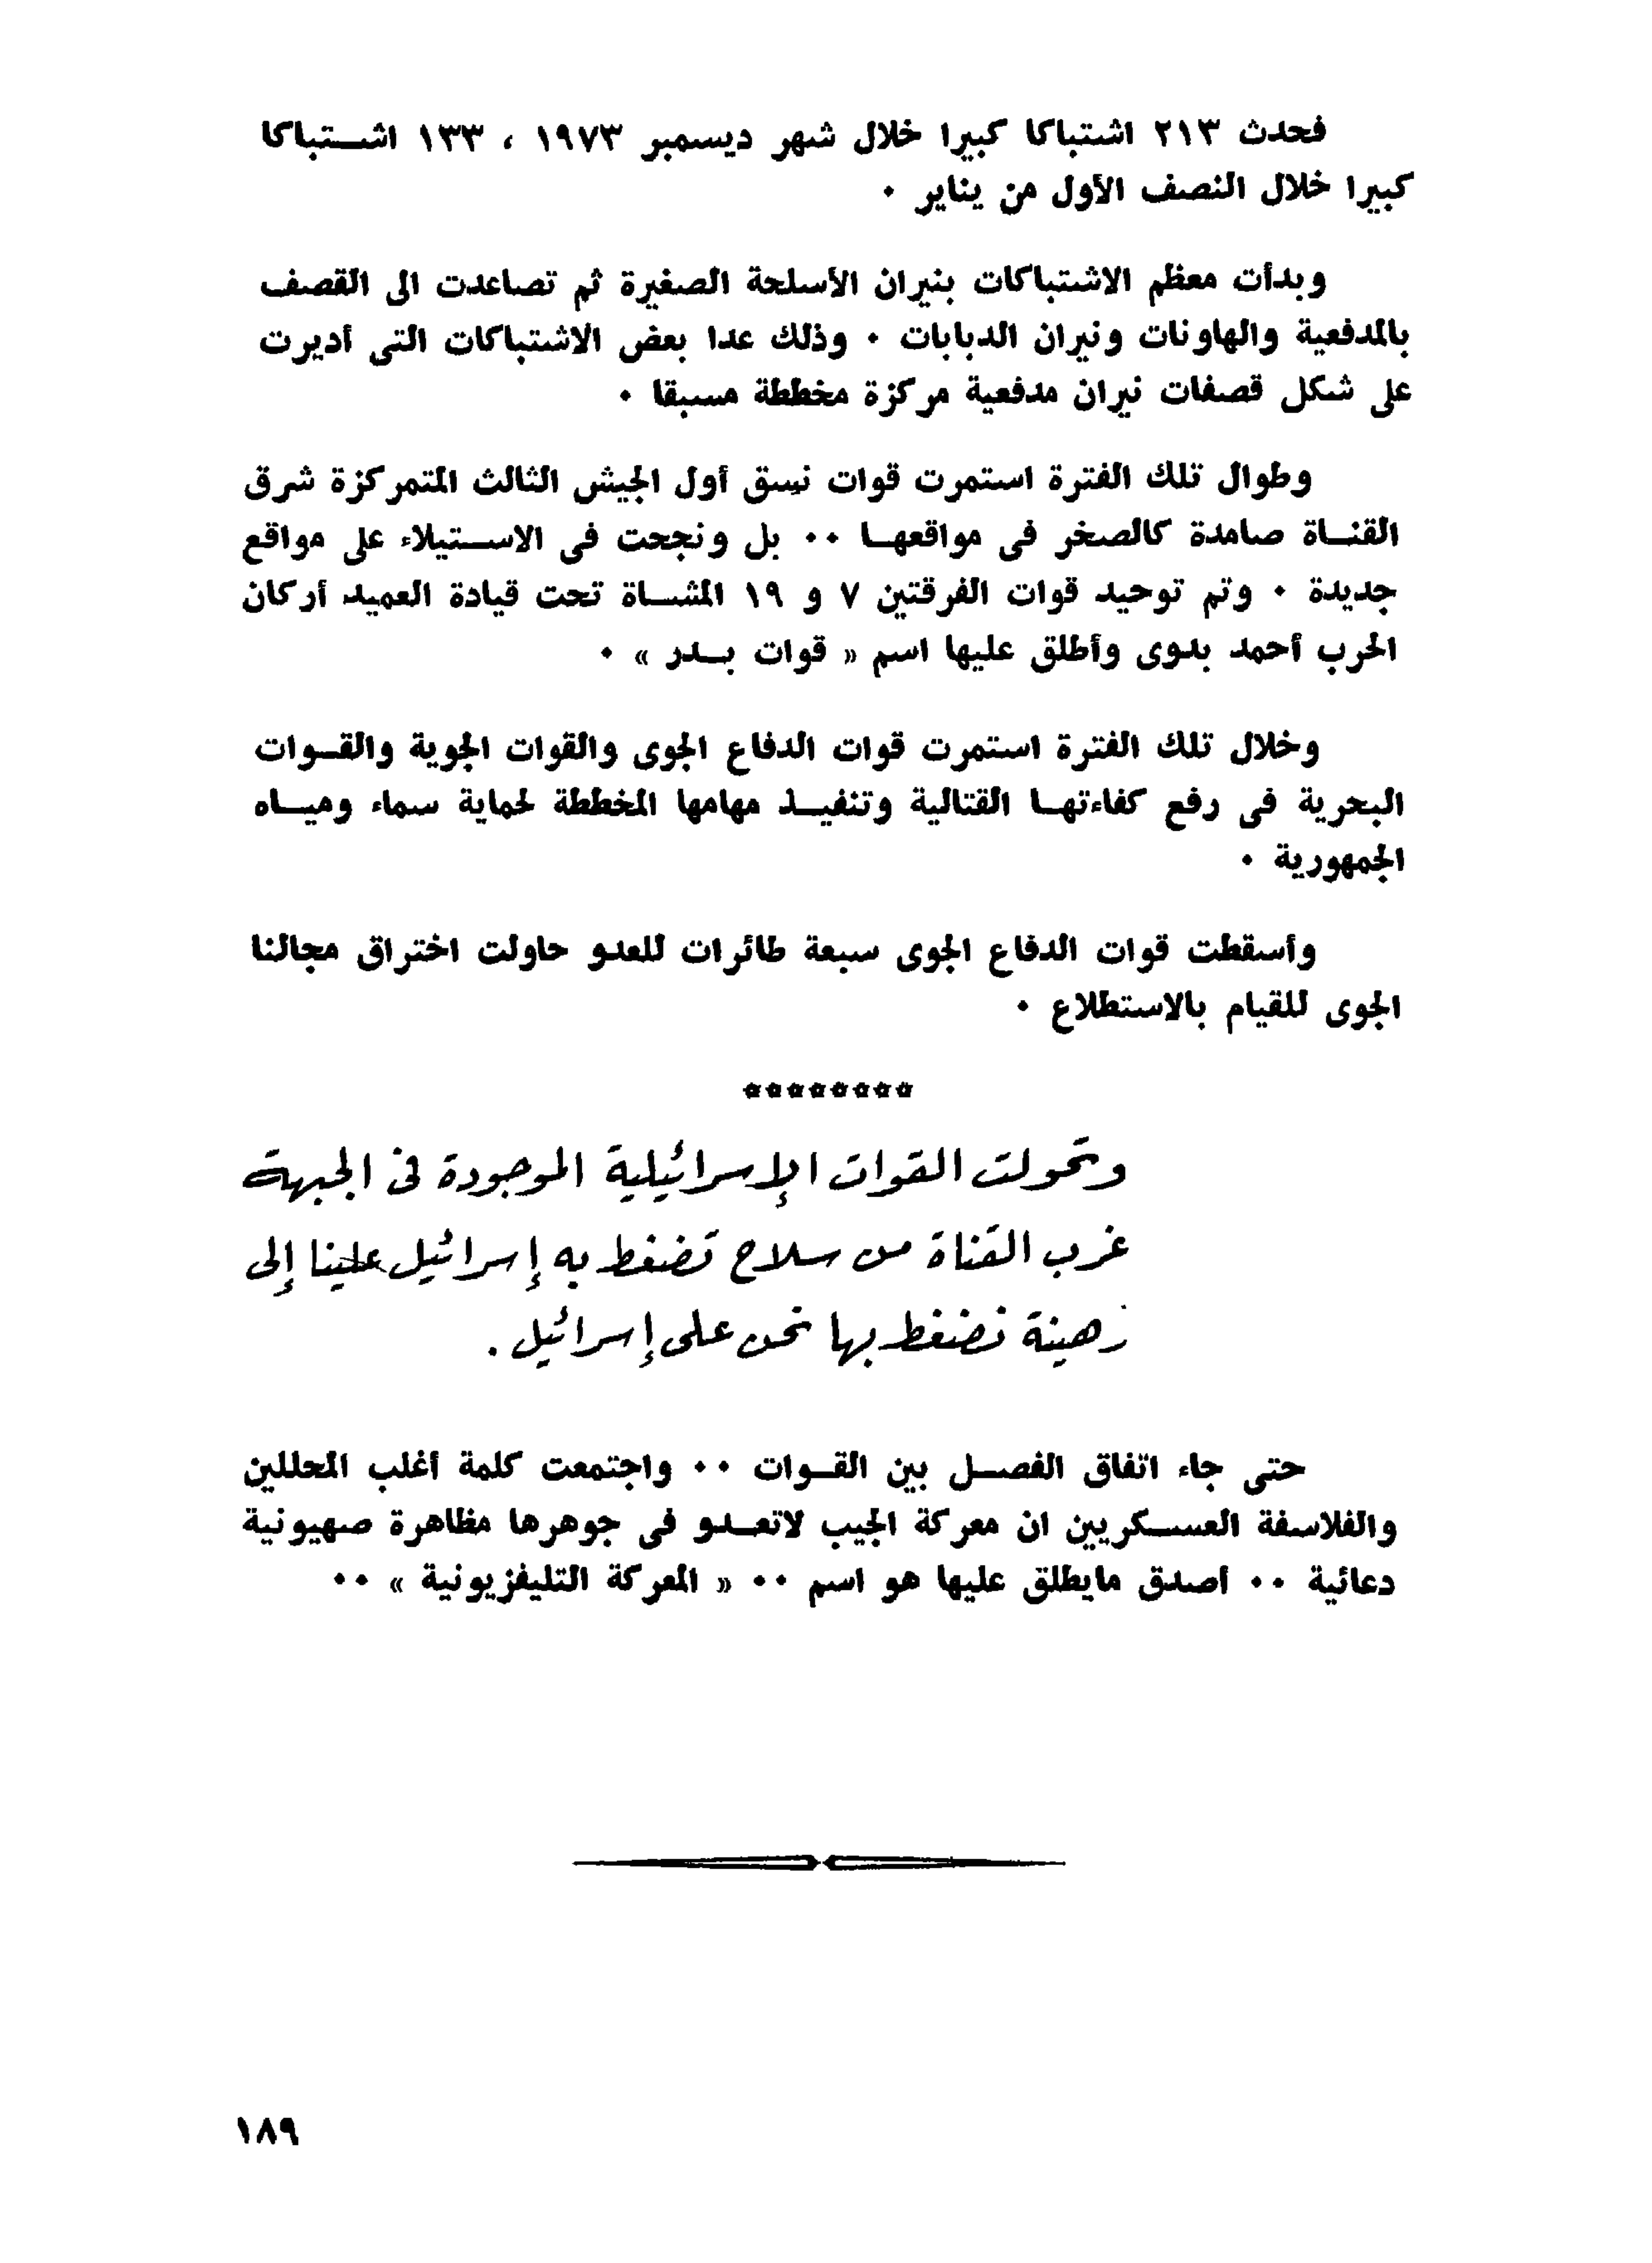 فحدث ٢١٣ اشتباكا كبيرا خلال شهر ديسمبر ١٩٧٣ ، ١٣٣ اشتباكا
كبيرا خلال النصف الأول من يناير ٠
وبدأت معظم الاشتباكات بنيران الأسلحة الصغيرة ثم تصاعدت الى القصف
بالمدفعية والهاونات ونيران الدبابات ٠ وذلك عدا بعض الاشتباكات التى أديرت
على شكل قصفات نيران مدفعية مركزة مخططة مسبقا ٠
وطوال تلك الفترة استمرت قوات نسق أول الجيش الثالث المتمركزة شرق
القناة صامدة كالصخر فى مواقعها ٠٠ بل ونجحت فى الاستيلاء على مواقع
جديدة ٠ وتم توحيد قوات الفرقتين ٧ و ١٩ المشاة تحت قيادة العميد أركان
الحرب أحمد بدوى وأطلق عليها اسم « قوات بدر » ٠
وخلال تلك الفترة استمرت قوات الدفاع الجوى والقوات الجوية والقوات
البحرية فى رفع كفاءتها القتالية وتنفيذ مهامها المخططة لحماية سماء ومياه
الجمهورية ٠
وأسقطت قوات الدفاع الجوى سبعة طائرات للعدو حاولت اختراق مجالنا
الجوى للقيام بالاستطلاع ٠
********
وتحولت القوات الإسرائيلية الموجودة فى الجبهة
غرب القناة من سلاح تضغط به إسرائيل علينا إلى
رهينة نضغط بها نحن على إسرائيل .
حتى جاء اتفاق الفصل بين القوات ٠٠ واجتمعت كلمة أغلب المحللين
والفلاسفة العسكريين ان معركة الجيب لاتعدو فى جوهرها مظاهرة صهيونية
دعائية ٠٠ أصدق مايطلق عليها هو اسم ٠٠ « المعركة التليفزيونية » ٠٠
١٨٩